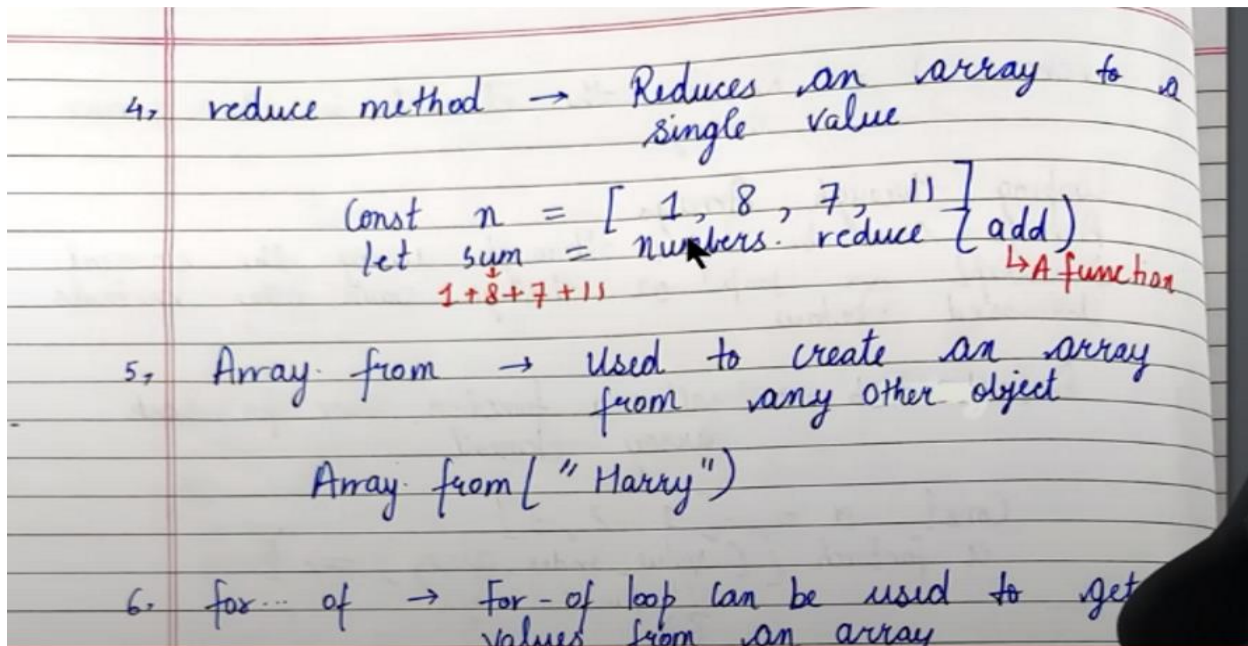 4, reduce method → Reduces an array to a
single value
Const n = [ 1, 8, 7, 11 ]
let sum = numbers. reduce (add)
↳ A function
1+8+7+11
5, Array. from → Used to create an array
from any other object
Array. from ("Harry")
6. for... of → For-of loop can be used to get
values from an array